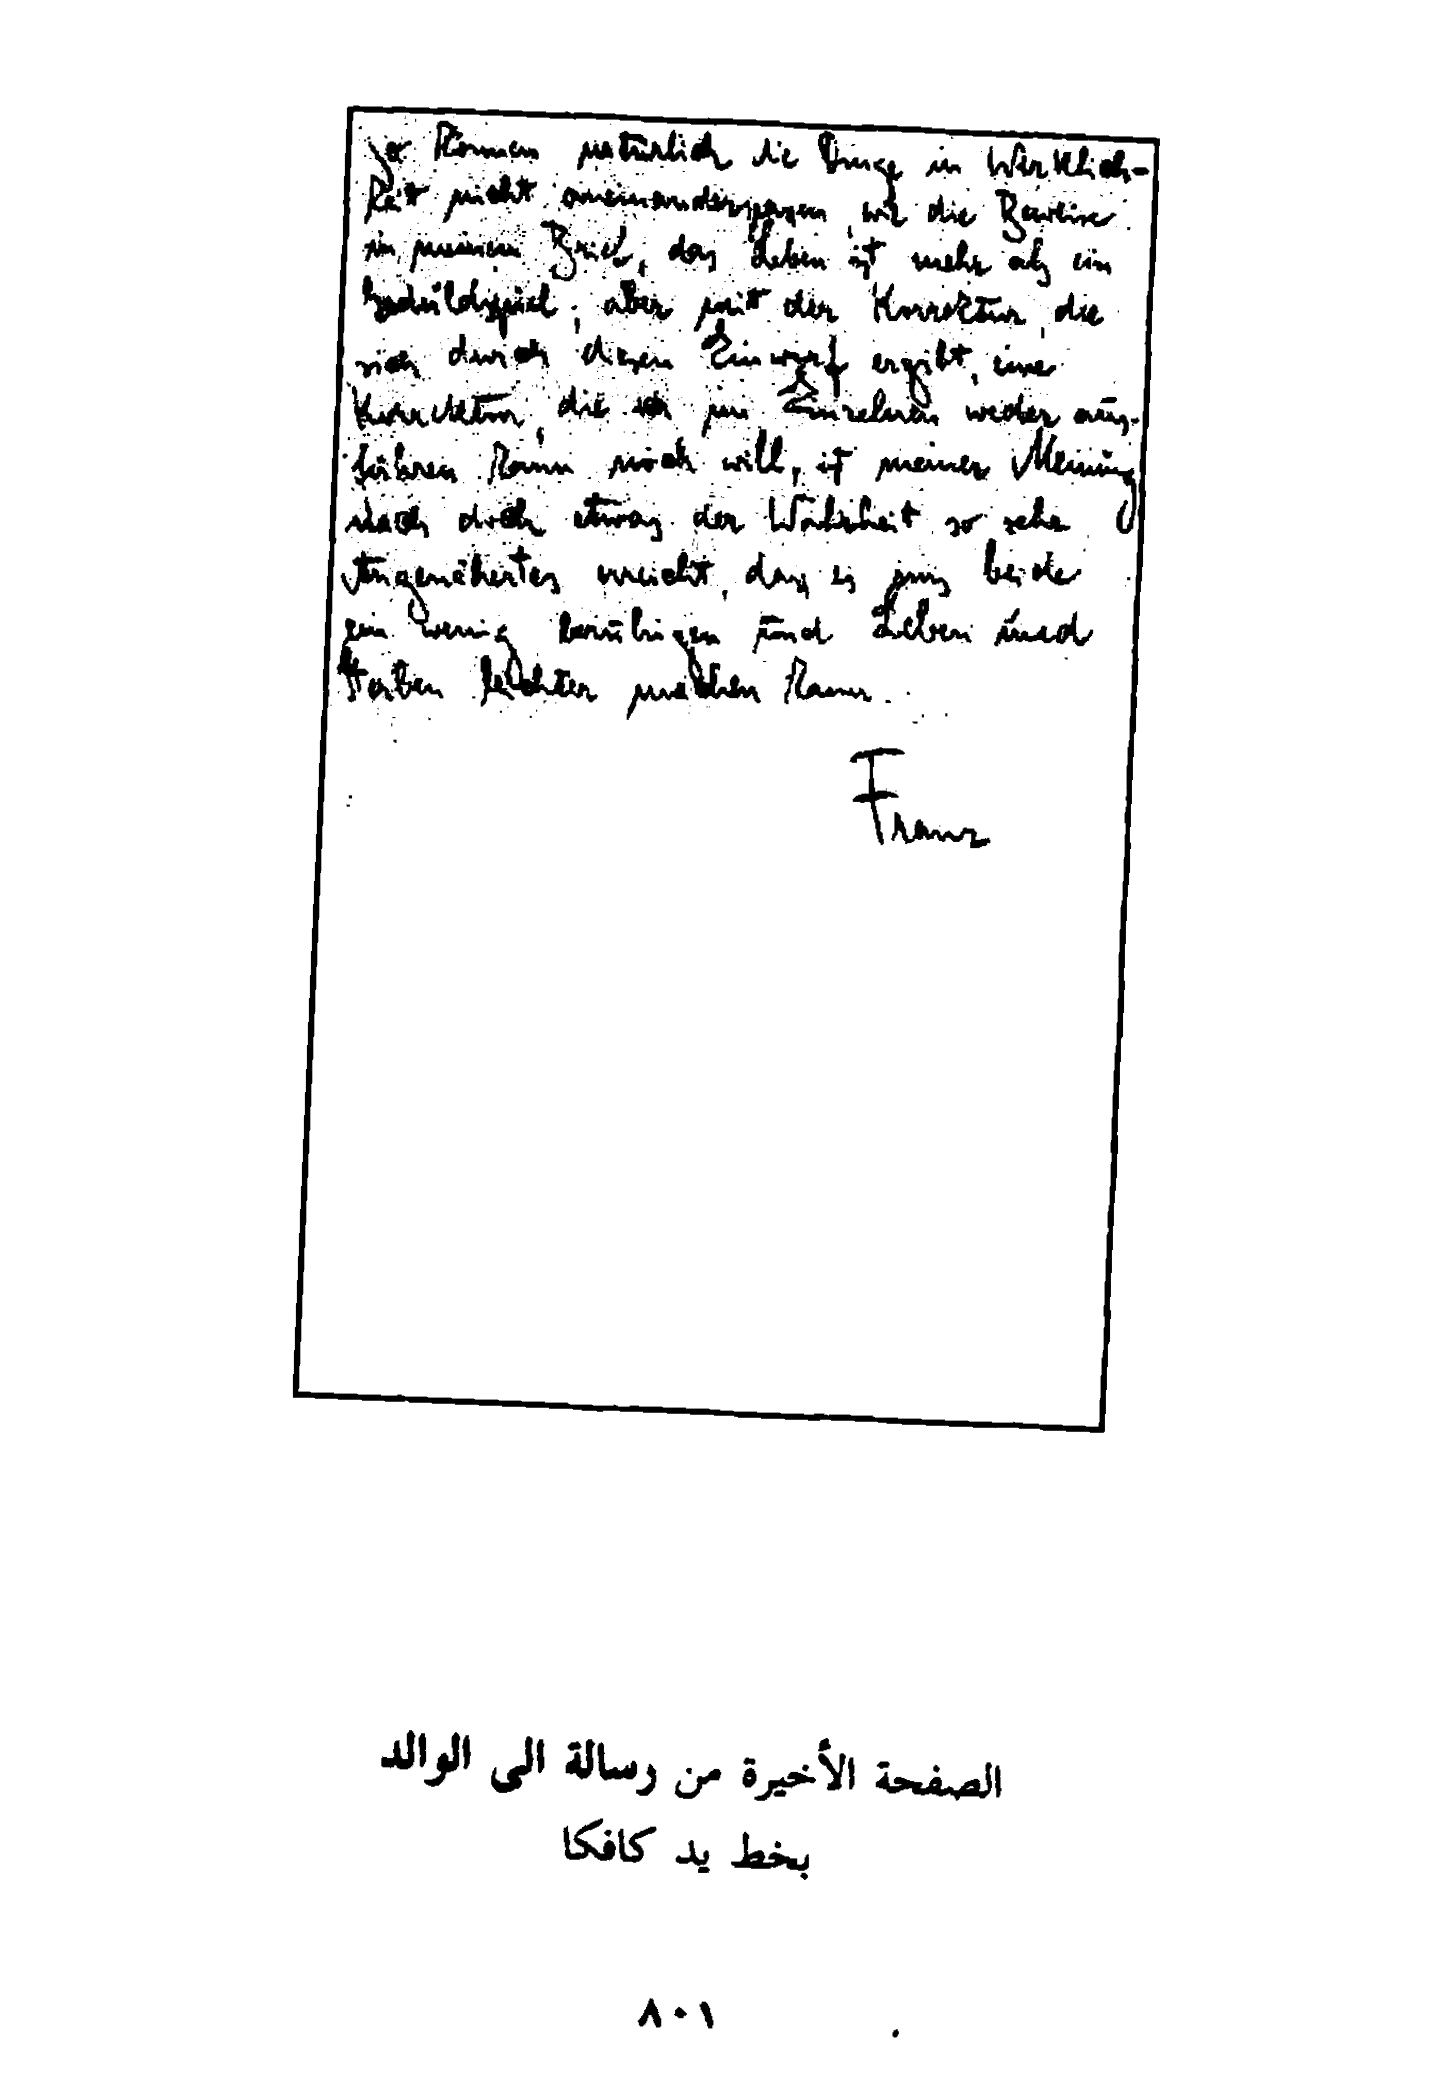 So können natürlich die Dinge in Wirklich-
keit nicht aneinanderpassen, wie die Beweise
in meinem Brief, das Leben ist mehr als ein
Geduldspiel; aber mit der Korrektur, die
sich durch diesen Einwurf ergibt, eine
Korrektur, die ich im Einzelnen weder aus-
führen kann noch will, ist meiner Meinung
nach doch etwas der Wahrheit so sehr
Angenähertes erreicht, das es uns beide
ein wenig beruhigen und Leben und
Sterben leichter machen kann.
Franz
الصفحة الأخيرة من رسالة الى الوالد
بخط يد كافكا
٨٠١